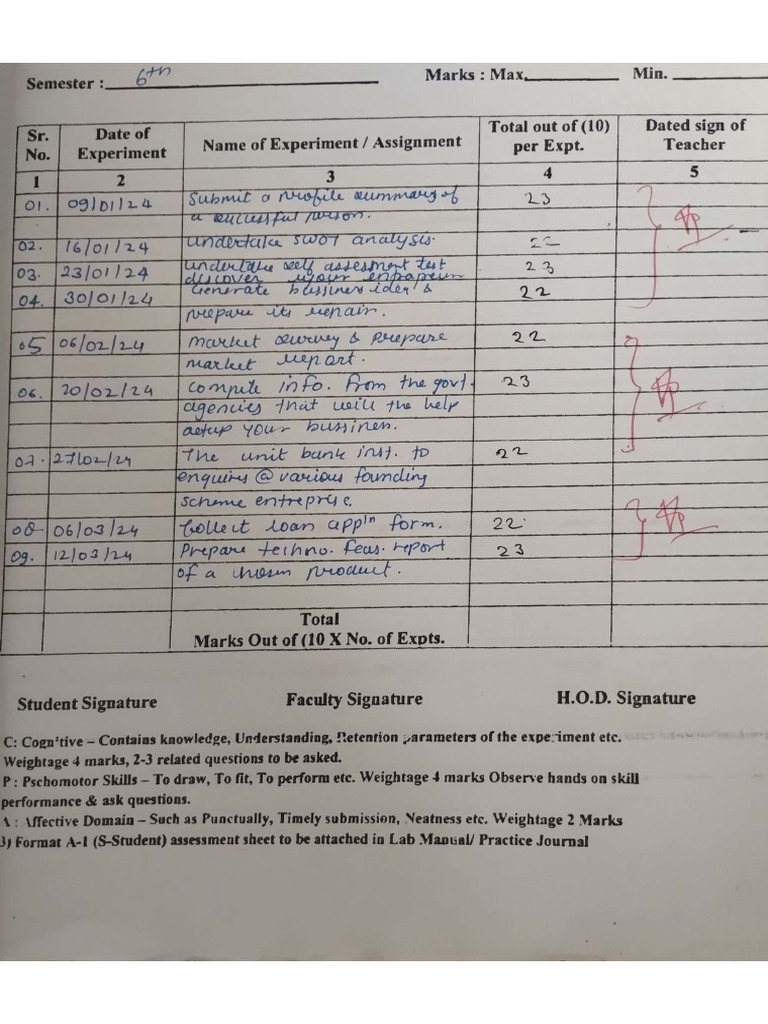 Semester : 6th Marks : Max. Min.
Sr. No. Date of Experiment Name of Experiment / Assignment Total out of (10) per Expt. Dated sign of Teacher
1 2 3 4 5
01. 09/01/24 Submit a profile summary of 23
a successful person.
02. 16/01/24 undertake SWOT analysis. 22
03. 23/01/24 undertake self assesment test 23
discover your
04. 30/01/24 Generate bussiness idea & 22
prepare its
05 06/02/24 market survey & prepare 22
market report.
06. 20/02/24 compile info. from the govt. 23
agencies that will the help
setup your bussiness.
07. 27/02/24 The unit bank inst. to 22
enquires @ various founding
scheme entreprise.
08 06/03/24 Collect loan appln form. 22
09. 12/03/24 Prepare techno. feas. report 23
of a chosen product.
Total
Marks Out of (10 X No. of Expts.
Student Signature Faculty Signature H.O.D. Signature
C: Cognitive – Contains knowledge, Understanding, Retention parameters of the experiment etc.
Weightage 4 marks, 2-3 related questions to be asked.
P : Pschomotor Skills – To draw, To fit, To perform etc. Weightage 4 marks Observe hands on skill
performance & ask questions.
A : Affective Domain – Such as Punctually, Timely submission, Neatness etc. Weightage 2 Marks
3) Format A-1 (S-Student) assessment sheet to be attached in Lab Manual/ Practice Journal